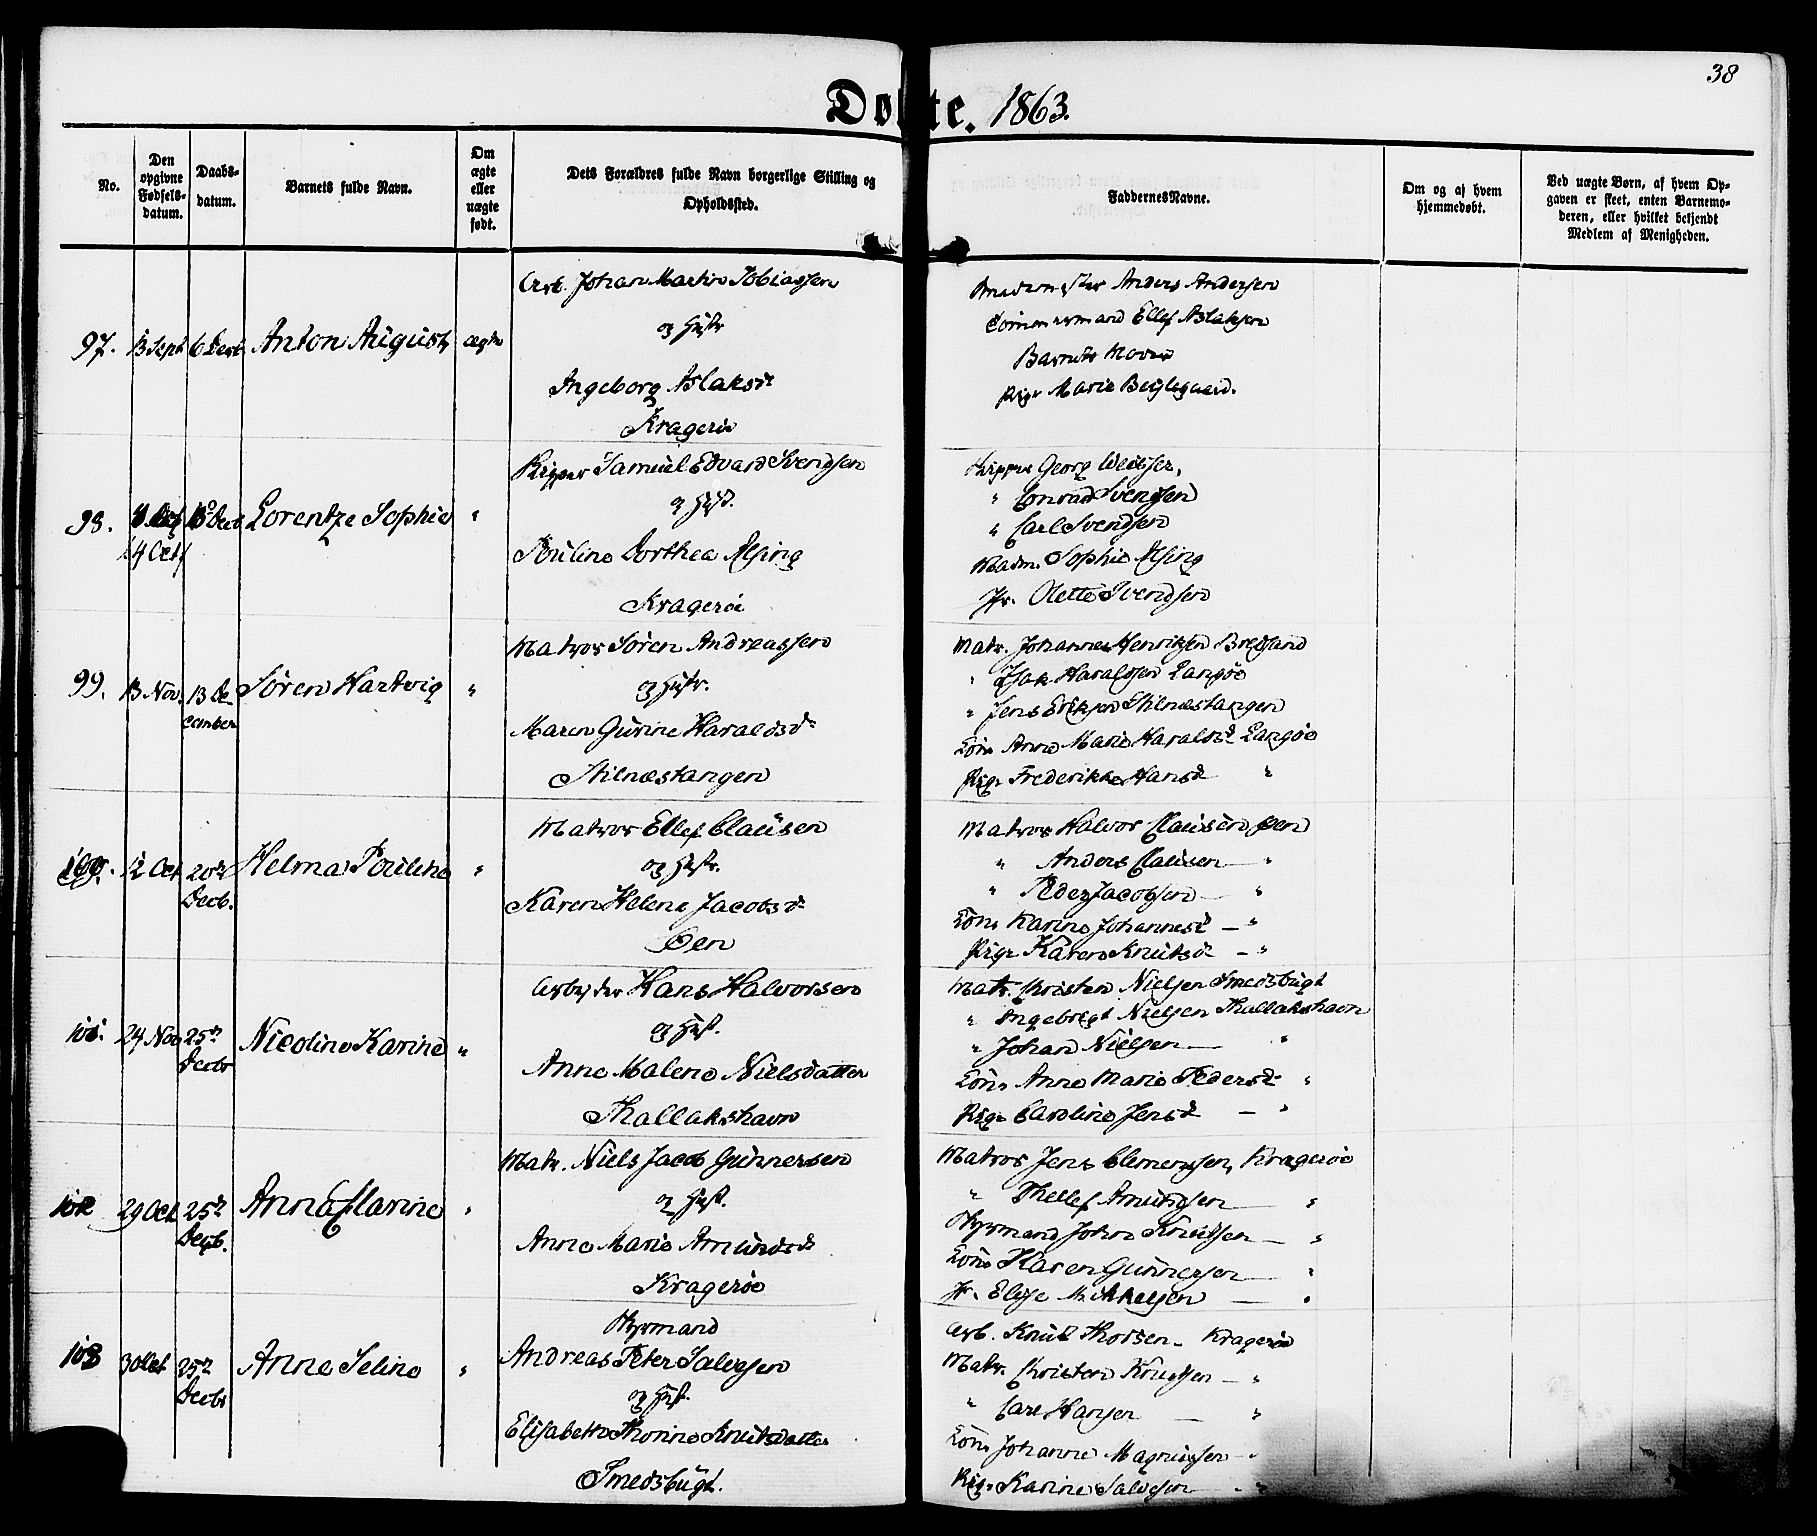 38
Døbte. 1863.
No.
Den opgivne Fødselsdatum.
Daabsdatum.
Barnets fulde Navn.
Om ægte eller uægte født.
Dets Forældres fulde Navn borgerlige Stilling og Opholdssted.
Faddernes Navne.
Om og af hvem hjemmedøbt.
Ved uægte Børn, af hvem Opgaven er skeet, enten Barnemoderen, eller hvilket bekjendt Medlem af Menigheden.
97. 13 Sept 6 Decb Anton August ægte
Arb. Johan Martin Tobiassen
og Hustr
Ingeborg Aslaksd
Kragerøe
Anders Andersen
Tømmermand Ellef Aslaksen
Barnets Moder
Pige Marie
98. 14 Oct Decb Lorentze Sophie "
Skipper Samuel Edvard Svendsen
og Hust.
Pouline Dorthea Alsing
Kragerøe
Skipper Georg
" Conrad Svendsen
" Carl Svendsen
Madm. Sophie Alsing
Jfr. Olette Svendsen
99. 13 Nov. 13 December Søren Hartvig "
Matros Søren Andreassen
og Hustr.
Maren Gurine Haraldsdr
Stilnæstangen
Matr. Johannes Henriksen Bredsand
" Isak Haraldsen Langøe
" Jens Eriksen Stilnæstangen
Kone Anne Marie Haraldsd Langøe
Pige Frederikke Hansd "
100. 12 Oct 20de Decb. Helma Pouline "
Matros Ellef Clausen
og Hustr.
Karen Helene Jacobsdr
Øen
Matros Halvor Clausen Øen
" Anders Clausen — "
" Peder Jacobsen — "
Kone Karine Johannesd — "
Pige Karen Knutsd — "
101. 24 Nov 25de Decbr Nicoline Karine "
Arbeyder Hans Halvorsen
og Hust.
Anne Malene Nielsdatter
Thallakshavn
Matr. Christen Nielsen Smedsbugt
" Ingebrigt Nielsen Thallakshavn
" Johan Nielsen — "
Kone Anne Marie Pedersd "
Pige Caroline Jensd — "
102 29 Oct 25de Decb. Anna Marine "
Matr. Niels Jacob Gunnersen
og Hust.
Anne Marie Amundsdr
Kragerøe
Matros Jens Clemensen, Kragerøe
" Thellef Amundsen — "
Styrmand Johan Knudsen — "
Kone Karen Gunnersen — "
Jfr. Elise Mikkelsen — "
103 30 Oct 25de Decbr Anne Seline "
Styrmand
Andreas Peter Salvesen
og Hust.
Elisabeth Thorine Knutsdatter
Smedsbugt.
Arb. Knut Thorsen - Kragerøe
Matr. Christen Knudsen — "
" Carl Hansen — "
Kone Johanne Magnussen - "
Pige Karine Salvesen - "